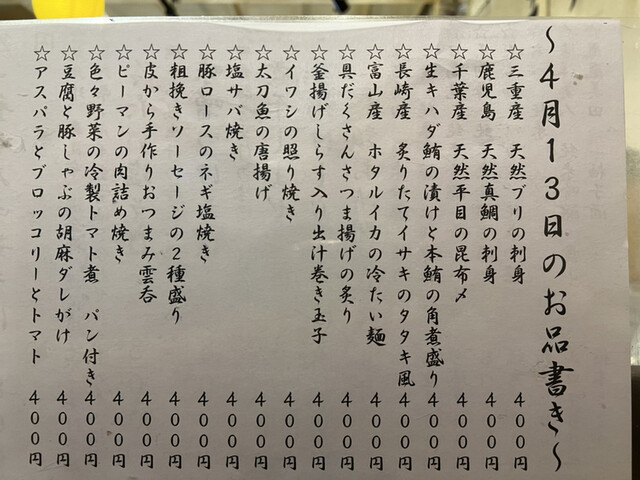 ～4月13日のお品書き～
☆三重産　天然ブリの刺身　400円
☆鹿児島　天然真鯛の刺身　400円
☆千葉産　天然平目の昆布〆　400円
☆生キハダ鮪の漬けと本鮪の角煮盛り　400円
☆長崎産　炙りたてイサキのタタキ風　400円
☆富山産　ホタルイカの冷たい麺　400円
☆具だくさんさつま揚げの炙り　400円
☆釜揚げしらす入り出汁巻き玉子　400円
☆イワシの照り焼き　400円
☆太刀魚の唐揚げ　400円
☆塩サバ焼き　400円
☆豚ロースのネギ塩焼き　400円
☆粗挽きソーセージの2種盛り　400円
☆皮から手作りおつまみ雲呑　400円
☆ピーマンの肉詰め焼き　400円
☆色々野菜の冷製トマト煮　パン付き　400円
☆豆腐と豚しゃぶの胡麻ダレがけ　400円
☆アスパラとブロッコリーとトマト　400円